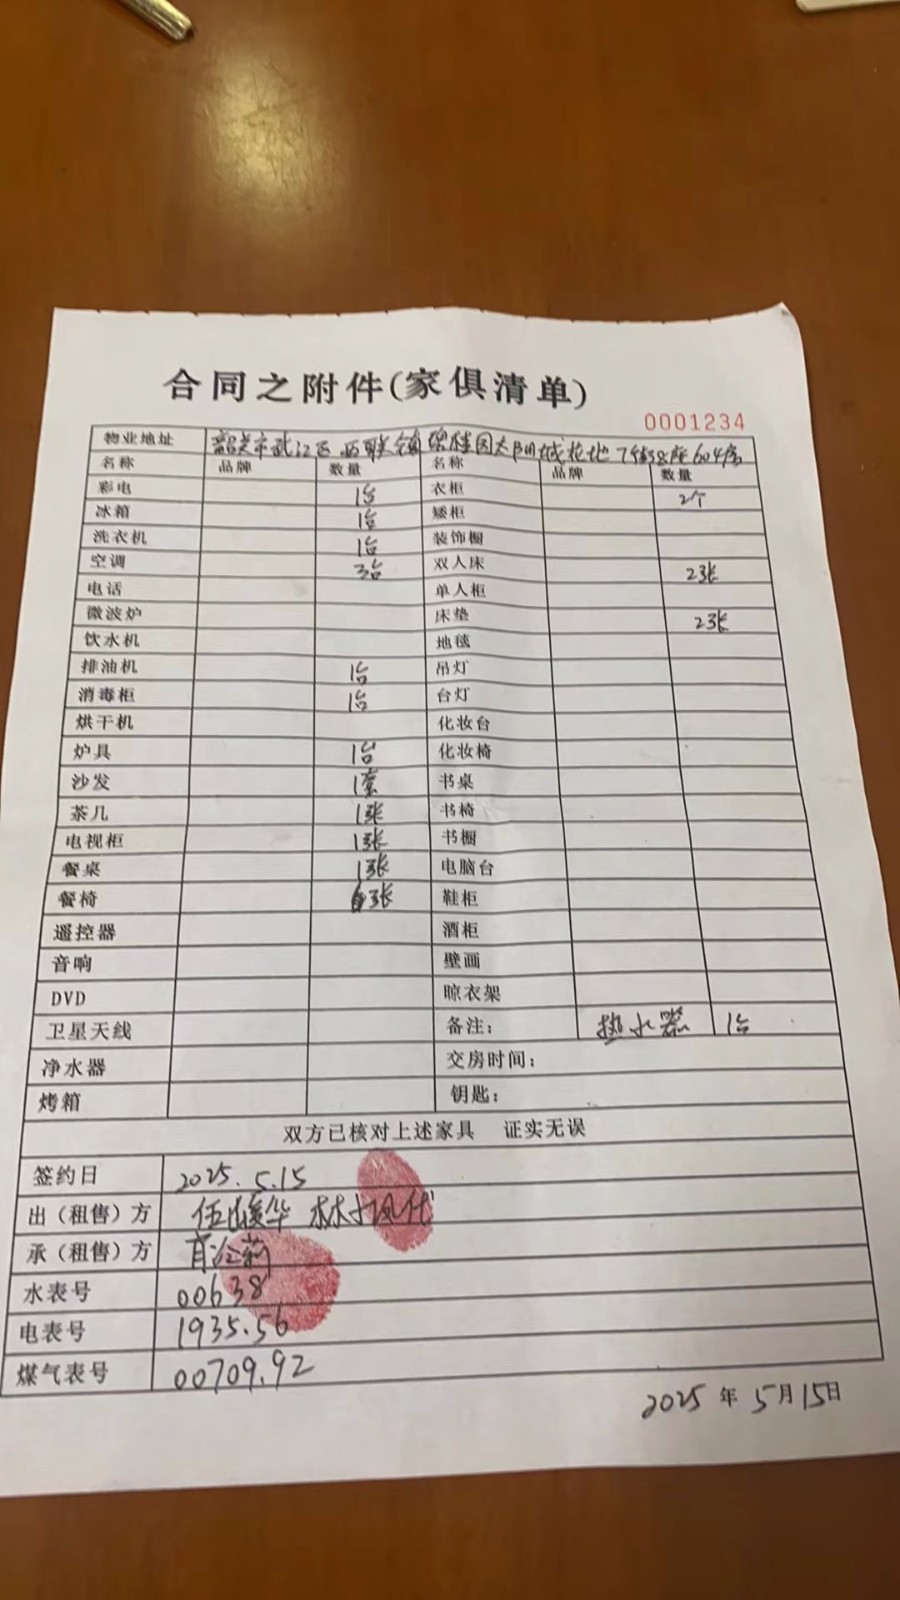 合同之附件(家俱清单)
0001234
物业地址 韶关市武江区西联镇碧桂园太阳城花地7街8座604房
名称 品牌 数量 名称 品牌 数量
彩电 1台 衣柜 2个
冰箱 1台 矮柜
洗衣机 1台 装饰橱
空调 3台 双人床 2张
电话 单人柜
微波炉 床垫 2张
饮水机 地毯
排油机 1台 吊灯
消毒柜 1台 台灯
烘干机 化妆台
炉具 1台 化妆椅
沙发 1套 书桌
茶几 1张 书椅
电视柜 1张 书橱
餐桌 1张 电脑台
餐椅 张 鞋柜
遥控器 酒柜
音响 壁画
DVD 晾衣架
卫星天线 备注: 热水器 1台
净水器 交房时间:
烤箱 钥匙:
双方已核对上述家具 证实无误
签约日 2025.5.15
出（租售）方 伍峻华 林 代
承（租售）方
水表号 00638
电表号 1935.56
煤气表号 00709.92
2025年5月15日